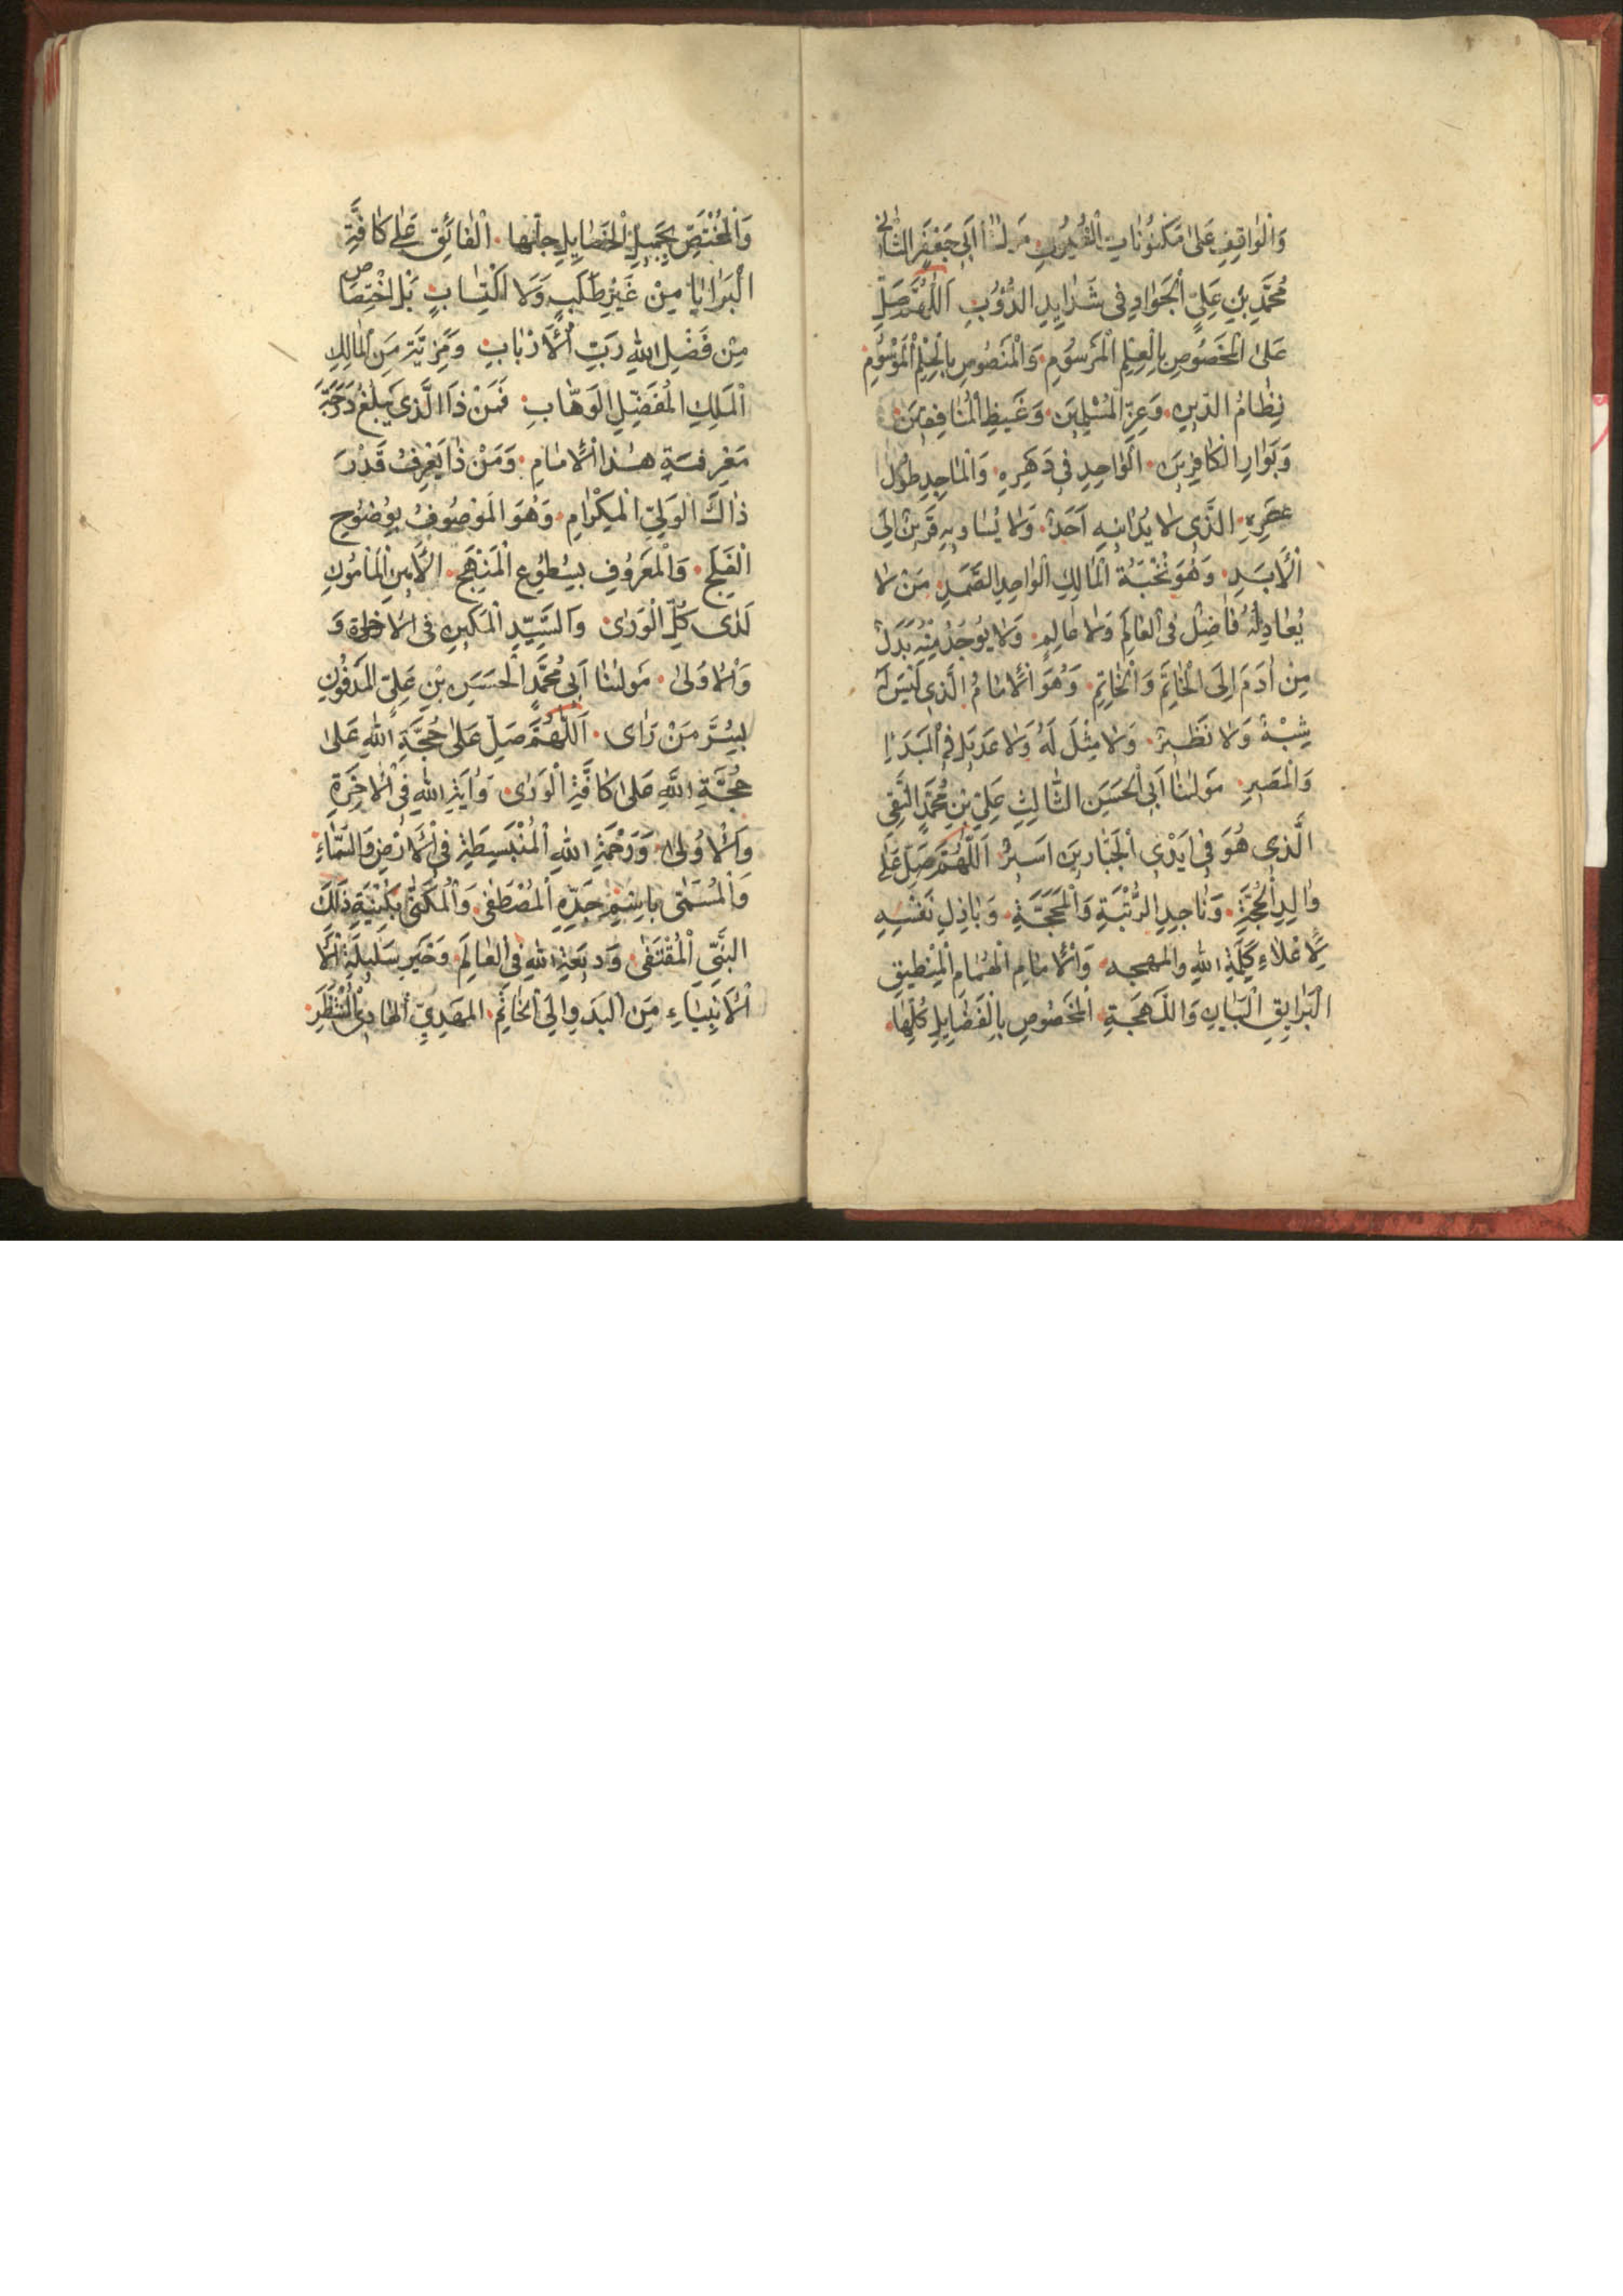 وَالْوٰاقِفِ عَلىٰ مَكْنُونٰاتِ الْغُيُوبِ مَولٰنٰا اَبي جَعْفَرٍ الثّٰاني
مُحَمَّدِ بْنِ عَلِيٍّ الْجَوٰادِ فِى شَدٰايِدِ الدُّؤُبِ اَللّٰهُمَّ صَلِّ
عَلىَ الْمَخْصُوصِ بِالْعِلْمِ الْمَرسُومِ وَالْمَنصُوصِ بِالْحِلْمِ الْمَوْسُومِ
نِظٰامُ الدّينِ وَعِزِّ الْمُسْلِمينَ وَغَيظِ الْمُنٰافِقينَ
وَبَوٰارِ الْكٰافِرينَ الَوٰاحِدِ فى دَهَرِهِ وَالْمٰاجِدِ طوُل
عصَرِهِ الَّذى لا يُدٰانيهِ اَحَدٌ وَلا يُسٰاويهِ قَرينٌ اِلَى
الْاَبَدِ وَهُوَ نُخْبَةُ الْمٰالِكِ الْوٰاحِدِ الصَّمَدِ مَنْ لا
يُعٰادِلُهُ فٰاضِلٌ فى العٰالَمِ وَلا عٰالِمٍ وَلا يُوجَدُ مِنْهُ بَدَلٌ
مِنْ اٰدَمَ اِلَى الْخٰاتَمِ وَالْخٰاتِمِ وَهُوَ الْاِمٰامُ الَّذى لَيْسَ لَهُ
شِبْهٌ وَلا نَظيرٌ وَلا مِثْلَ لَهُ وَلا عَديلَ فِى الْمَبْدَاِ
وَالْمَصيرِ مَولٰنٰا اَبِى الْحَسَنِ الثّٰالِثِ عَلِىِّ بْنِ مُحَمَّدٍ النَّقِى
الَّذى هُوَ فى اَيْدِى الْجَبّٰارينَ اَسيرٌ اَللّٰهُمَّ صَلِّ عَلىٰ
وٰالِدِ الْحُجَّةِ وَنٰاجِدِ الرُّتْبَةِ وَالْمَحَجَّةِ وَبٰاذِلِ نَفْسِهِ
لِاِعْلاءِ كَلِمَةِ اللّٰهِ وَالمهجه وَالْاِمٰامِ الْهُمٰامِ الْمِنْطيقِ
الْبَرايِقِ الْبَيٰانِ وَاللَّهْجَةِ الْمَخْصُوصِ بِالْفَضٰايِلِ كُلِّهٰا
وَالْمُخْتَصِّ بِجَميلِ الْخَصٰايِلِ جلّها الْفٰائِقِ عَلىٰ كٰافَّةِ
الْبَرٰايٰا مِنْ غَيْرِ طَلَبٍ وَلَا اكْتِسٰابٍ بَلْ اخْتِصٰاص
مِنْ فَضْلِ اللّٰهِ رَبِّ الْاَرْبٰابِ وَمَزِيَّةٍ مِنَ الْمٰالِكِ
الْمَلِكِ الْمُفَضِّلِ الْوَهّٰابِ فَمَنْ ذَا الَّذى يَبْلُغُ دَرَجَةَ
مَعْرِفَةِ هٰذَا الْاِمٰامِ وَمَنْ ذٰا يَعْرِفُ قَدْرَ
ذٰاكَ الْوَلِىِّ الْمِكْرٰامِ وَهُوَ الْمَوْصُوفُ بِوُضُوحِ
الْفَلَجِ وَالْمَعرُوفِ بِسُطُوعِ الْمَنْهَجِ الْاَمينِ الْمَأمُونِ
لَدٰى كُلِّ الْوَرىٰ وَالسَّيِّدِ الْمَكينِ فى الْاخرة وَ
وَالْاُولىٰ مَولٰنٰا اَبى مُحَمَّدٍ الْحَسَنِ بْنِ عَلِىٍّ الْمَدْفُونِ
بِسُرَّ مَنْ رَاٰى اَللّٰهُمَّ صَلِّ عَلىٰ حُجَّةِ اللّٰهِ عَلىٰ
حُجَّةِ اللّٰهِ عَلىٰ كٰافَّةِ الْوَرٰى وَاٰيَةِ اللّٰهِ فِى الْاٰخِرَةِ
وَالْاُولىٰ وَرَحْمَةِ اللّٰهِ الْمُنْبَسِطَةِ فِى الْاَرْضِ وَالسَّمٰاءِ
وَالْمُسَمّىٰ بِاسْمِ جَدِّهِ الْمُصْطَفٰى وَالْمُكَنّٰى بِكُنْيَةِ ذٰلِكَ
النَّبِىِّ الْمُقْتَفٰى وَديعَةِ اللّٰهِ فِى الْعٰالَمِ وَخَيرِ سَليلَةِ الْاَ
الْاَنْبِيٰاءِ مِنَ الْبَدوِ اِلَى الْخٰاتَمِ المَهدِيِّ الْهٰادِى الْمُنْتَظَرِ